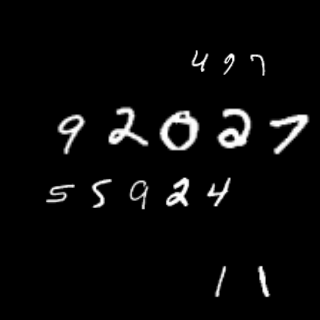 497
92027
55924
11